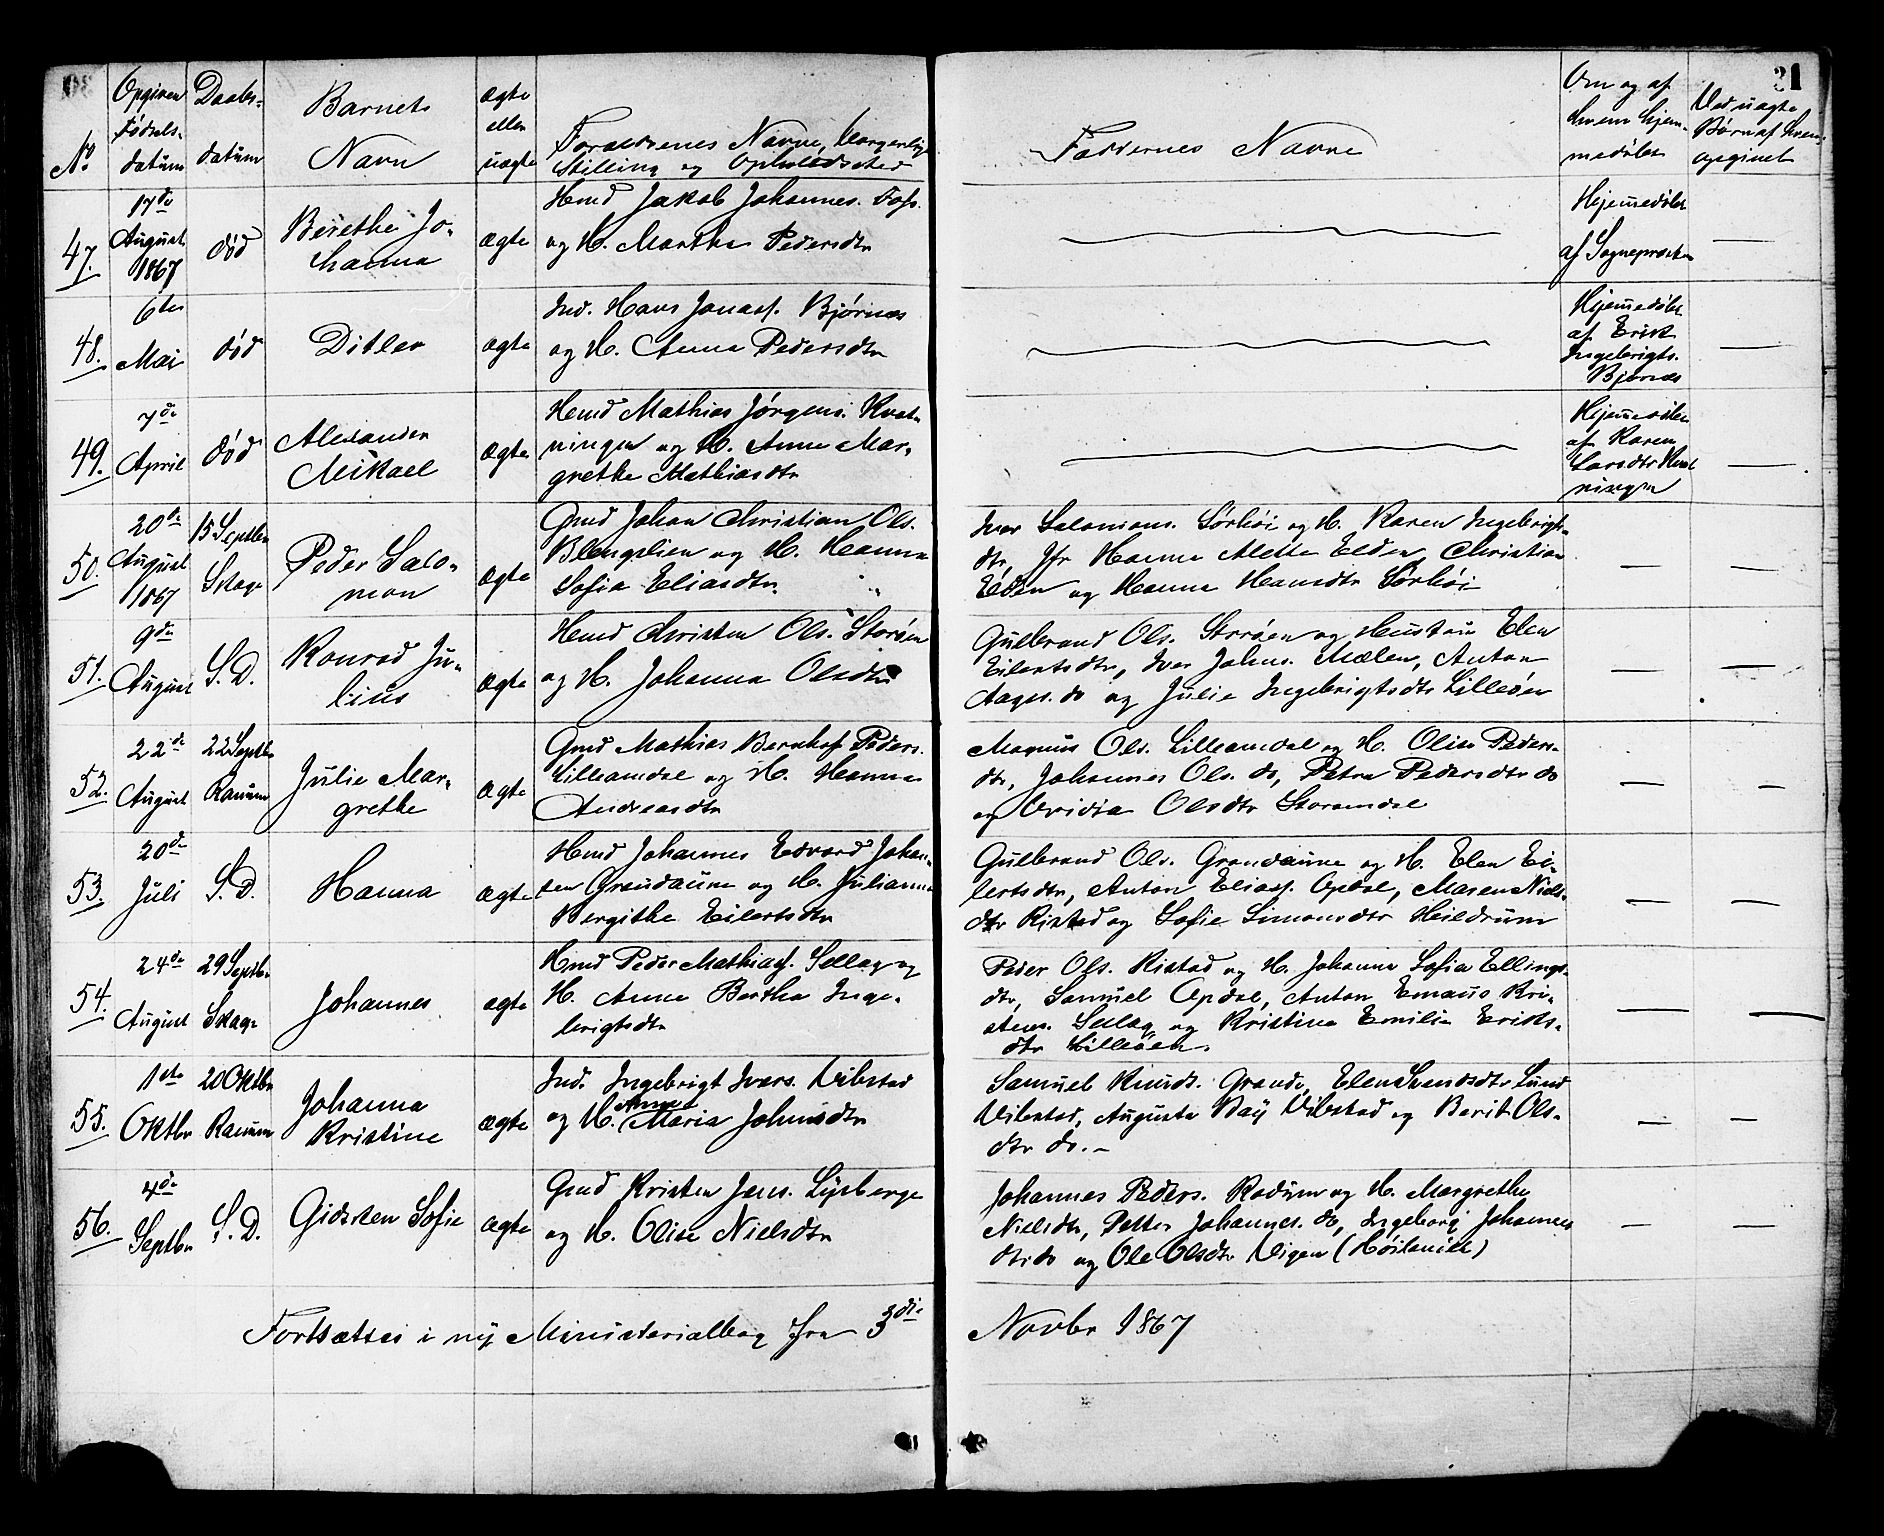 21
No
Opgiven
Fødsels-
datum
Daabs-
datum
Barnets
Navn
Ægte
eller
uægte
Forældrenes Navne, borgerlig
Stilling og Opholdssted
Faddernes Navne
Om og af
hvem hjem-
medøbt
Ved uægte
Børn af hvem
opgivet
47.
17de
August
1867
død
Berethe Jo-
hanna
ægte
Hmd Jakob Johannes. Fos.
og H. Martha Pedersdtr
Hjemmedøbt
af Sognepræsten
48.
6te
Mai
død
Ditlev
ægte
Ind. Hans Jonass. Bjørnes
og H. Anna Pedersdtr
Hjemmedøbt
af Erik
Ingebrigts.
Bjørnes
49.
7de
April
død
Alexander
Mikael
ægte
Hmd Mathias Jørgens. Kvat-
ningen og H. Anne Mar-
grethe Mathiasdtr
Hjemmedøbt
af Karen
Larsdtr Kvat
ningen
50.
20de
August
1867
15 Septbr
Skage
Peder Salo-
mon
ægte
Gmd Johan Christian Ols.
Blengslien og H. Hanna
Sofia Eliasdtr.
Iver Salamons. Sørhøi og H. Karen Ingebrigts-
dtr, Jfr Hanna Mette Elden, Christian
Elden og Hanna Hansdtr Sørhøi
51.
9de
August
S.D.
Konrad Ju-
lius
ægte
Hmd Christen Ols. Storøen
og H. Johanna Olsdtr
Gulbrand Ols. Storøen og Hustru Elen
Eilertsdtr, Iver Johns. Mælen, Anton
Aages. do og Julie Ingebrigtsdtr Lilleøen
52.
22de
August
22 Septbr
Ranum
Julie Mar-
grethe
ægte
Gmd Mathias Bernhof Peders.
Lilleamdal og H. Hanna
Andreasdtr
Magnus Ols. Lilleamdal og H. Olise Peders-
dtr, Johannes Ols. do, Petra Pedersdtr do
og Ovidia Olsdtr Storamdal
53.
20de
Juli
S.D.
Hanna
ægte
Hmd Johannes Edvard Johan-
sen Grandaune og H. Julianna
Bergithe Eilertsdtr
Gulbrand Ols. Grandaune og H. Elen Ei-
lertsdtr, Anton Eliass. Opdal, Maren Niels-
dtr Ristad og Sofie Simonsdtr Heildrum
54.
24de
August
29 Septbr
Skage
Johannes
ægte
Hmd Peder Mathiass. Sellæg og
H. Anne Bertha Inge-
brigtsdtr
Peder Ols. Ristad og H. Johanna Sofia Ellings-
dtr, Samuel Opdal, Anton Emaus Kri-
stens. Sellæg og Kristine Emilie Eriks-
dtr Lilleøen.
55.
1ste
Oktbr
20 Oktbr
Ranum
Johanna
Kristine
ægte
Ind. Ingebrigt Ivers. Vibstad
og H. Anne Maria Johnsdtr
Samuel Knuds. Grande, Elen Svendsdtr Lund
Vibstad, Augusta Bay Vibstad og Berit Ols-
dtr do.-
56.
4de
Septbr
S.D.
Gidsken Sofie
ægte
Gmd Kristen Jens. Lysberge
og H. Olise Nielsdtr
Johannes Peders. Rodum og H. Margrethe
Nielsdtr, Petter Johannes. do, Ingeborg Johannes
dtr do og Ole Olsdtr Vigen (Høilandet)
Fortsættes i ny Ministerialbog fra 3die Novbr 1867